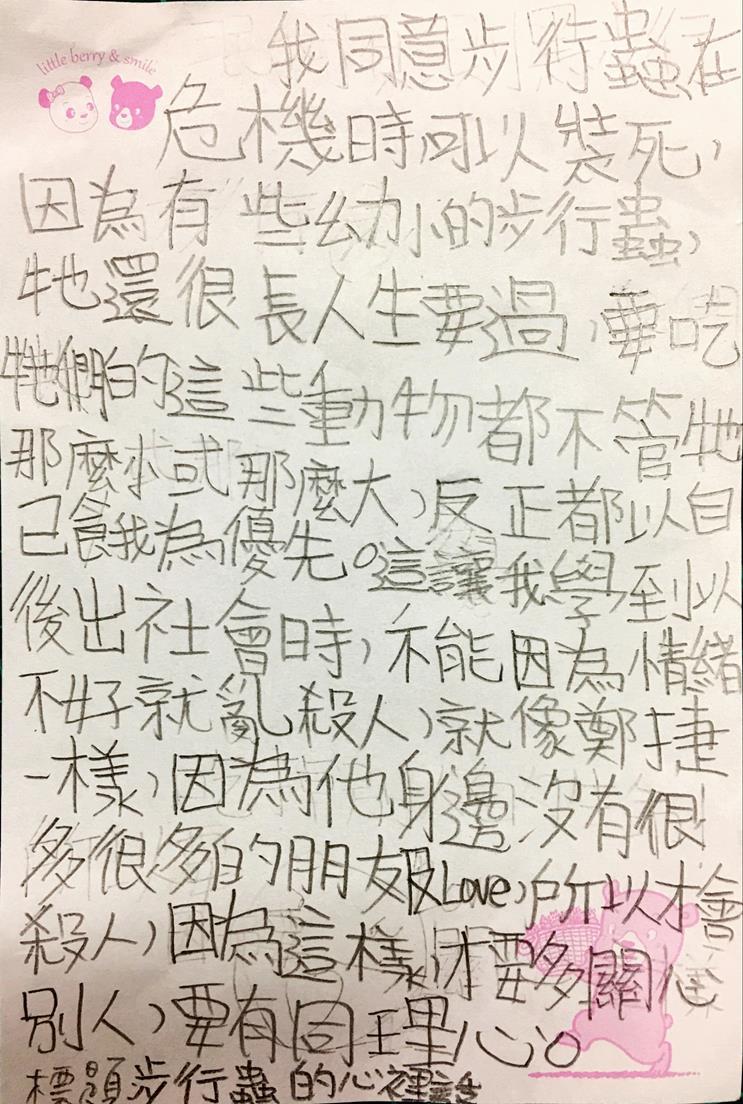 little berry & smile
我同意步行蟲在
危機時可以裝死，
因為有些幼小的步行蟲，
牠還很長人生要過，要吃
牠們的這些動物都不管牠
那麼小或那麼大，反正都以自
己餓為優先。這讓我學到以
後出社會時，不能因為情緒
不好就亂殺人，就像鄭捷
一樣，因為他身邊沒有很
多很多的朋友及Love，所以才會
殺人，因為這樣，才要多關心
別人，要有同理心。
標題步行蟲的心裡話